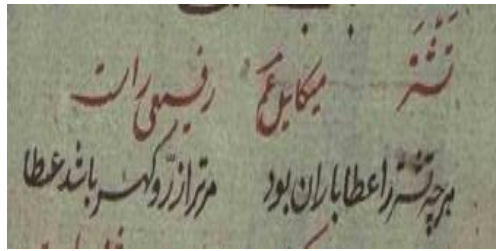 تشتر میکاییل عم رفیعی راست
هرچه تشتر را عطا باران بود مر ترا از زر و گهر باشد عطا